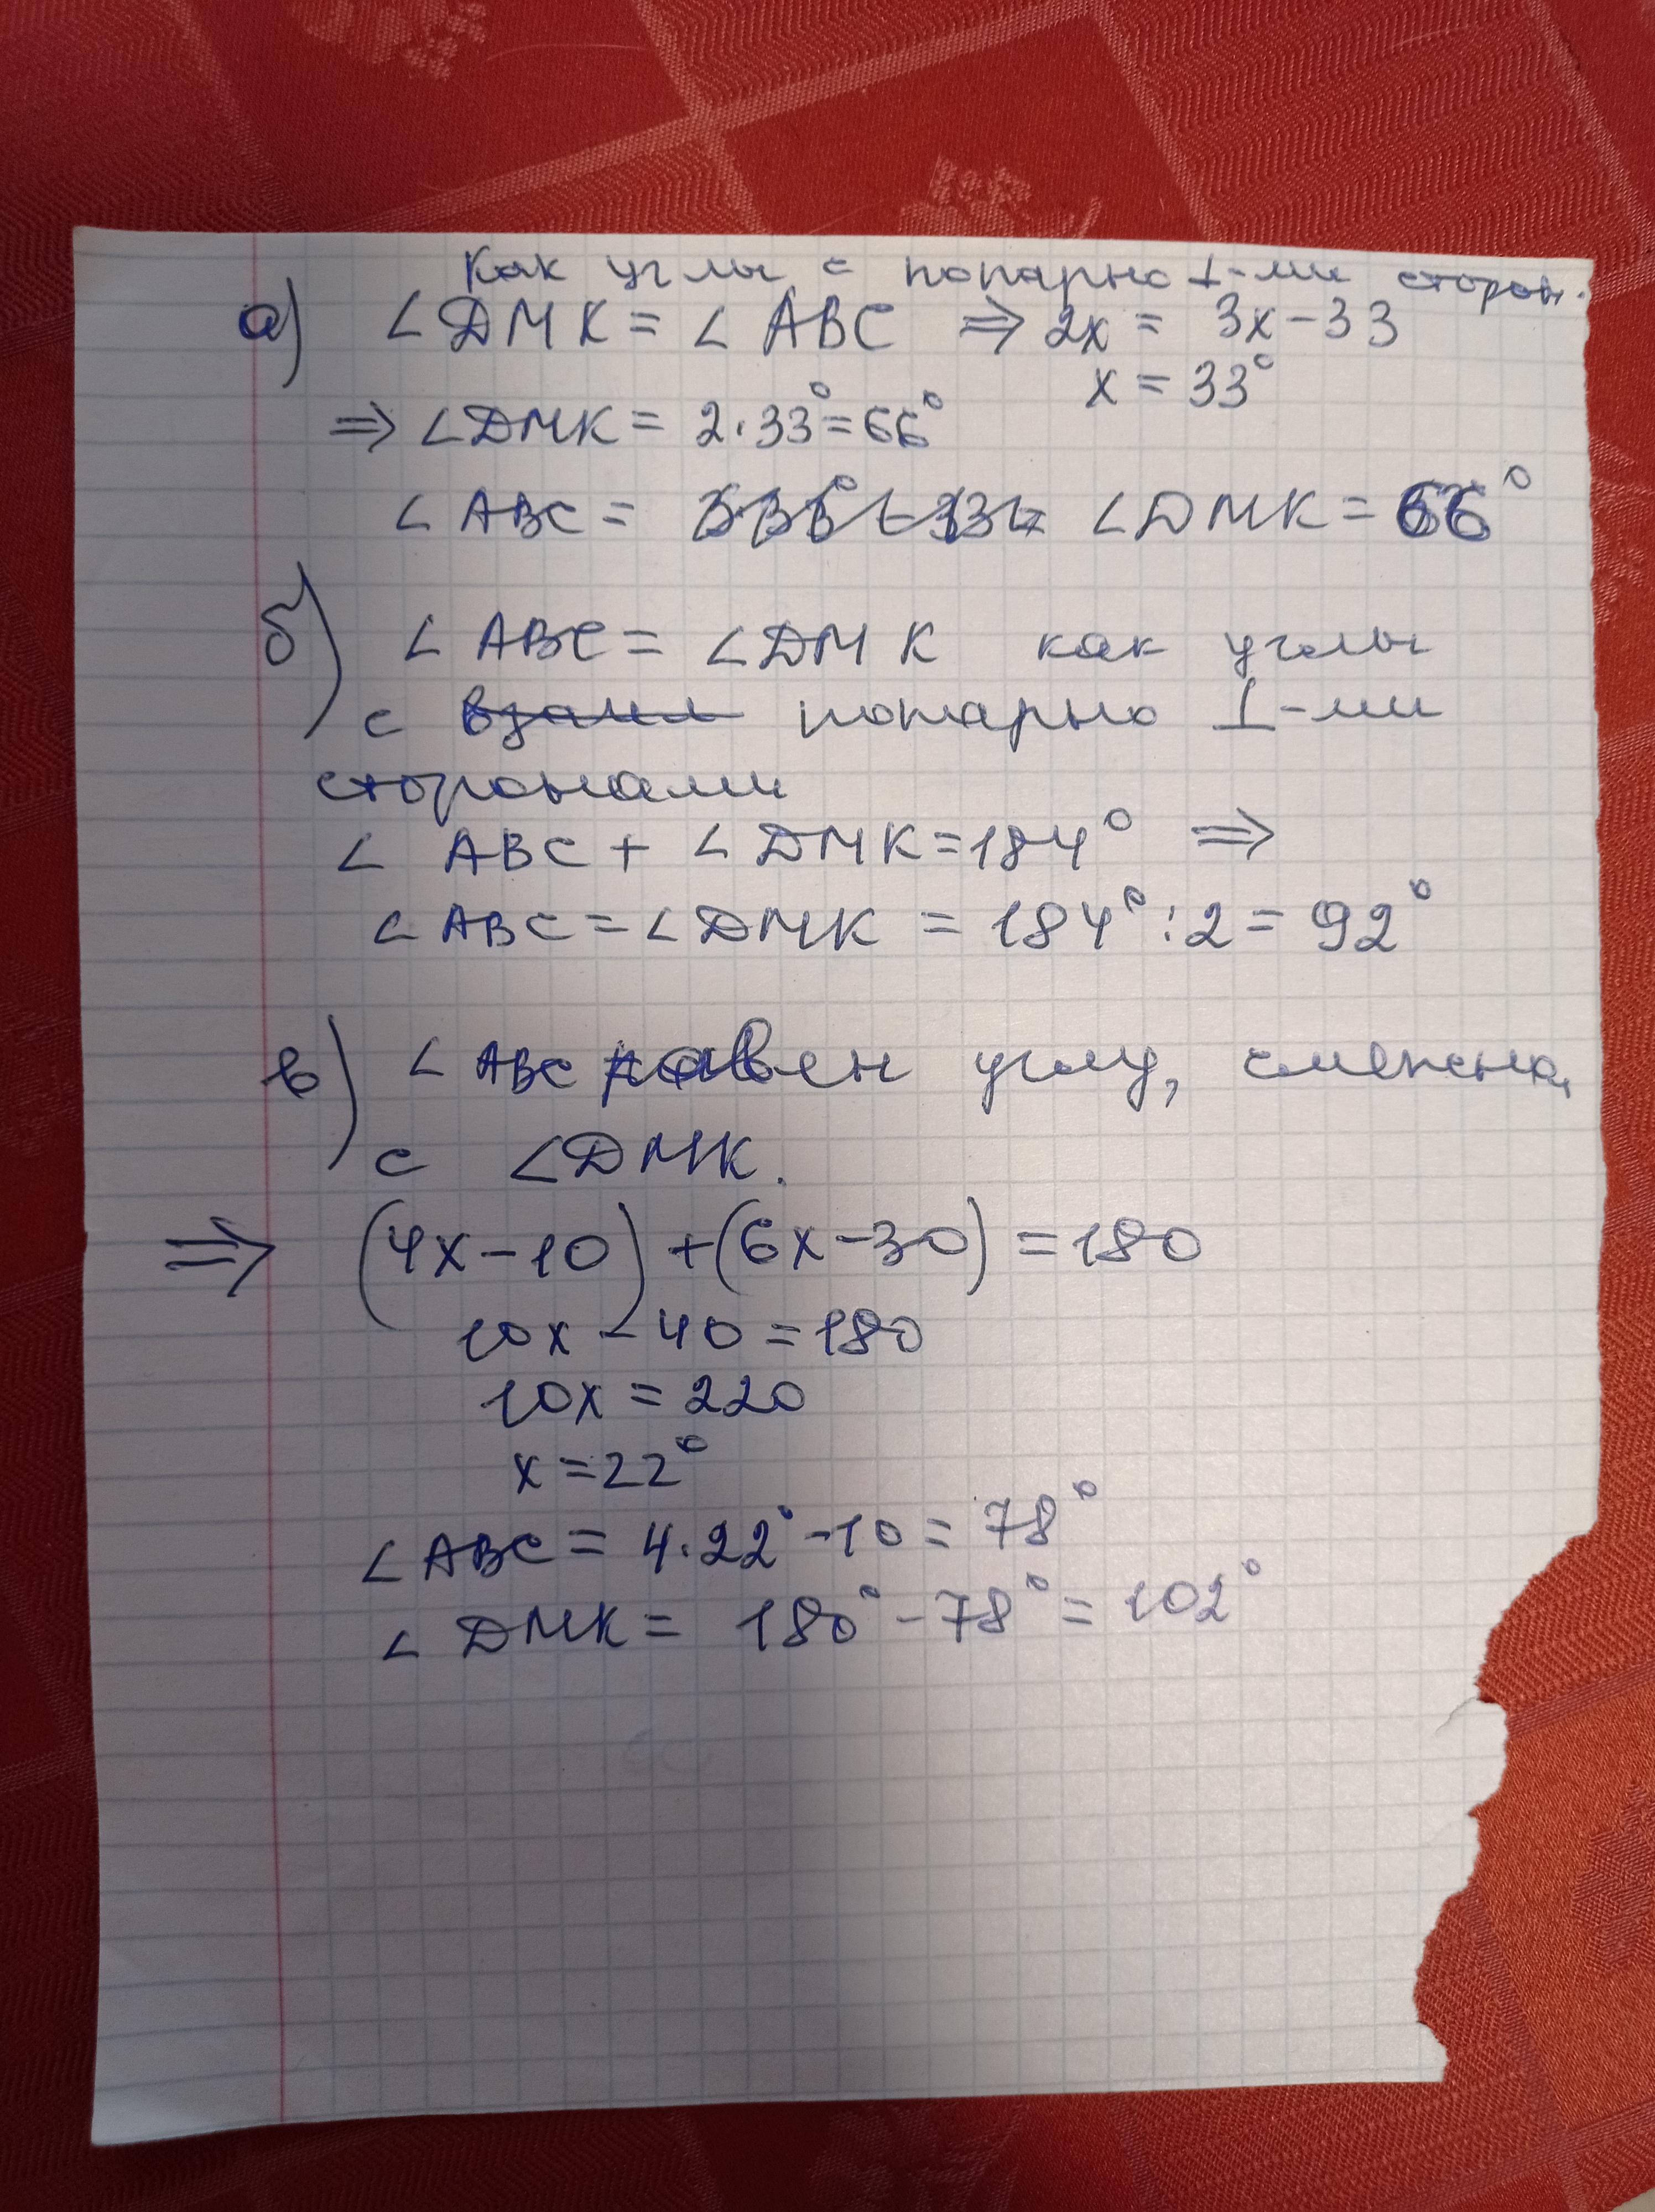 Как углы с попарно ⊥-ми сторон.
а) ∠DMK = ∠ABC ⇒ 2x = 3x-33
x = 33°
⇒ ∠DMK = 2·33° = 66°
∠ABC = ∠DMK = 66°
б) ∠ABC = ∠DMK как углы
с взаим попарно ⊥-ми
сторонами
∠ABC + ∠DMK = 184° ⇒
∠ABC = ∠DMK = 184° : 2 = 92°
в) ∠ABC равен углу, смежна,
с ∠DMK.
⇒ (4x-10) + (6x-30) = 180
10x - 40 = 180
10x = 220
x = 22°
∠ABC = 4·22° - 10 = 78°
∠DMK = 180° - 78° = 102°